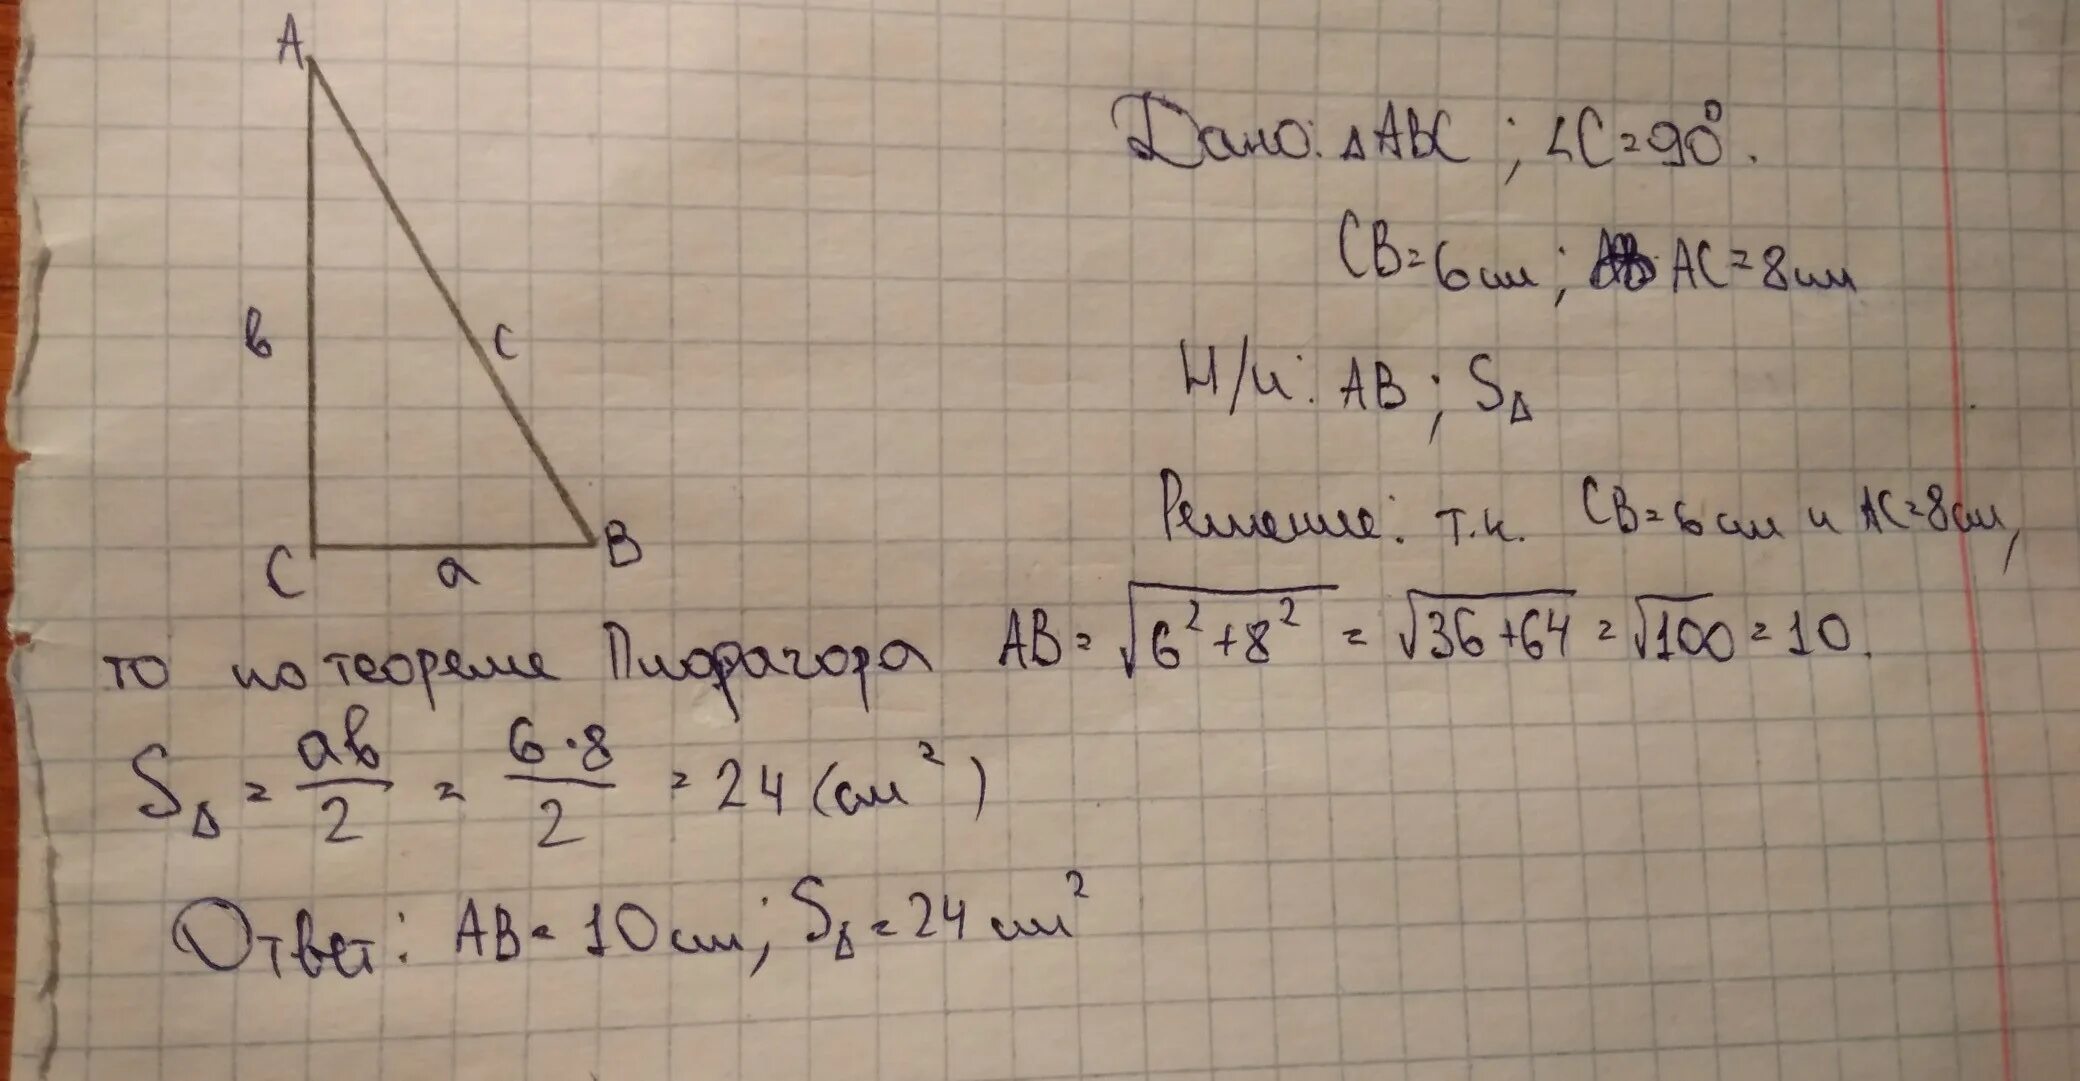 A
в
с
C
a
B
Дано: ΔABC ; ∠C=90°.
CB=6см; AC=8см
Н/и: AB ; SΔ
Решение: т.к. CB=6см и AC=8см,
то по теореме Пифагора AB=√(6²+8²) = √(36+64) = √100 = 10.
SΔ = ав/2 = 6·8/2 = 24 (см²)
Ответ: AB=10см; SΔ=24см²